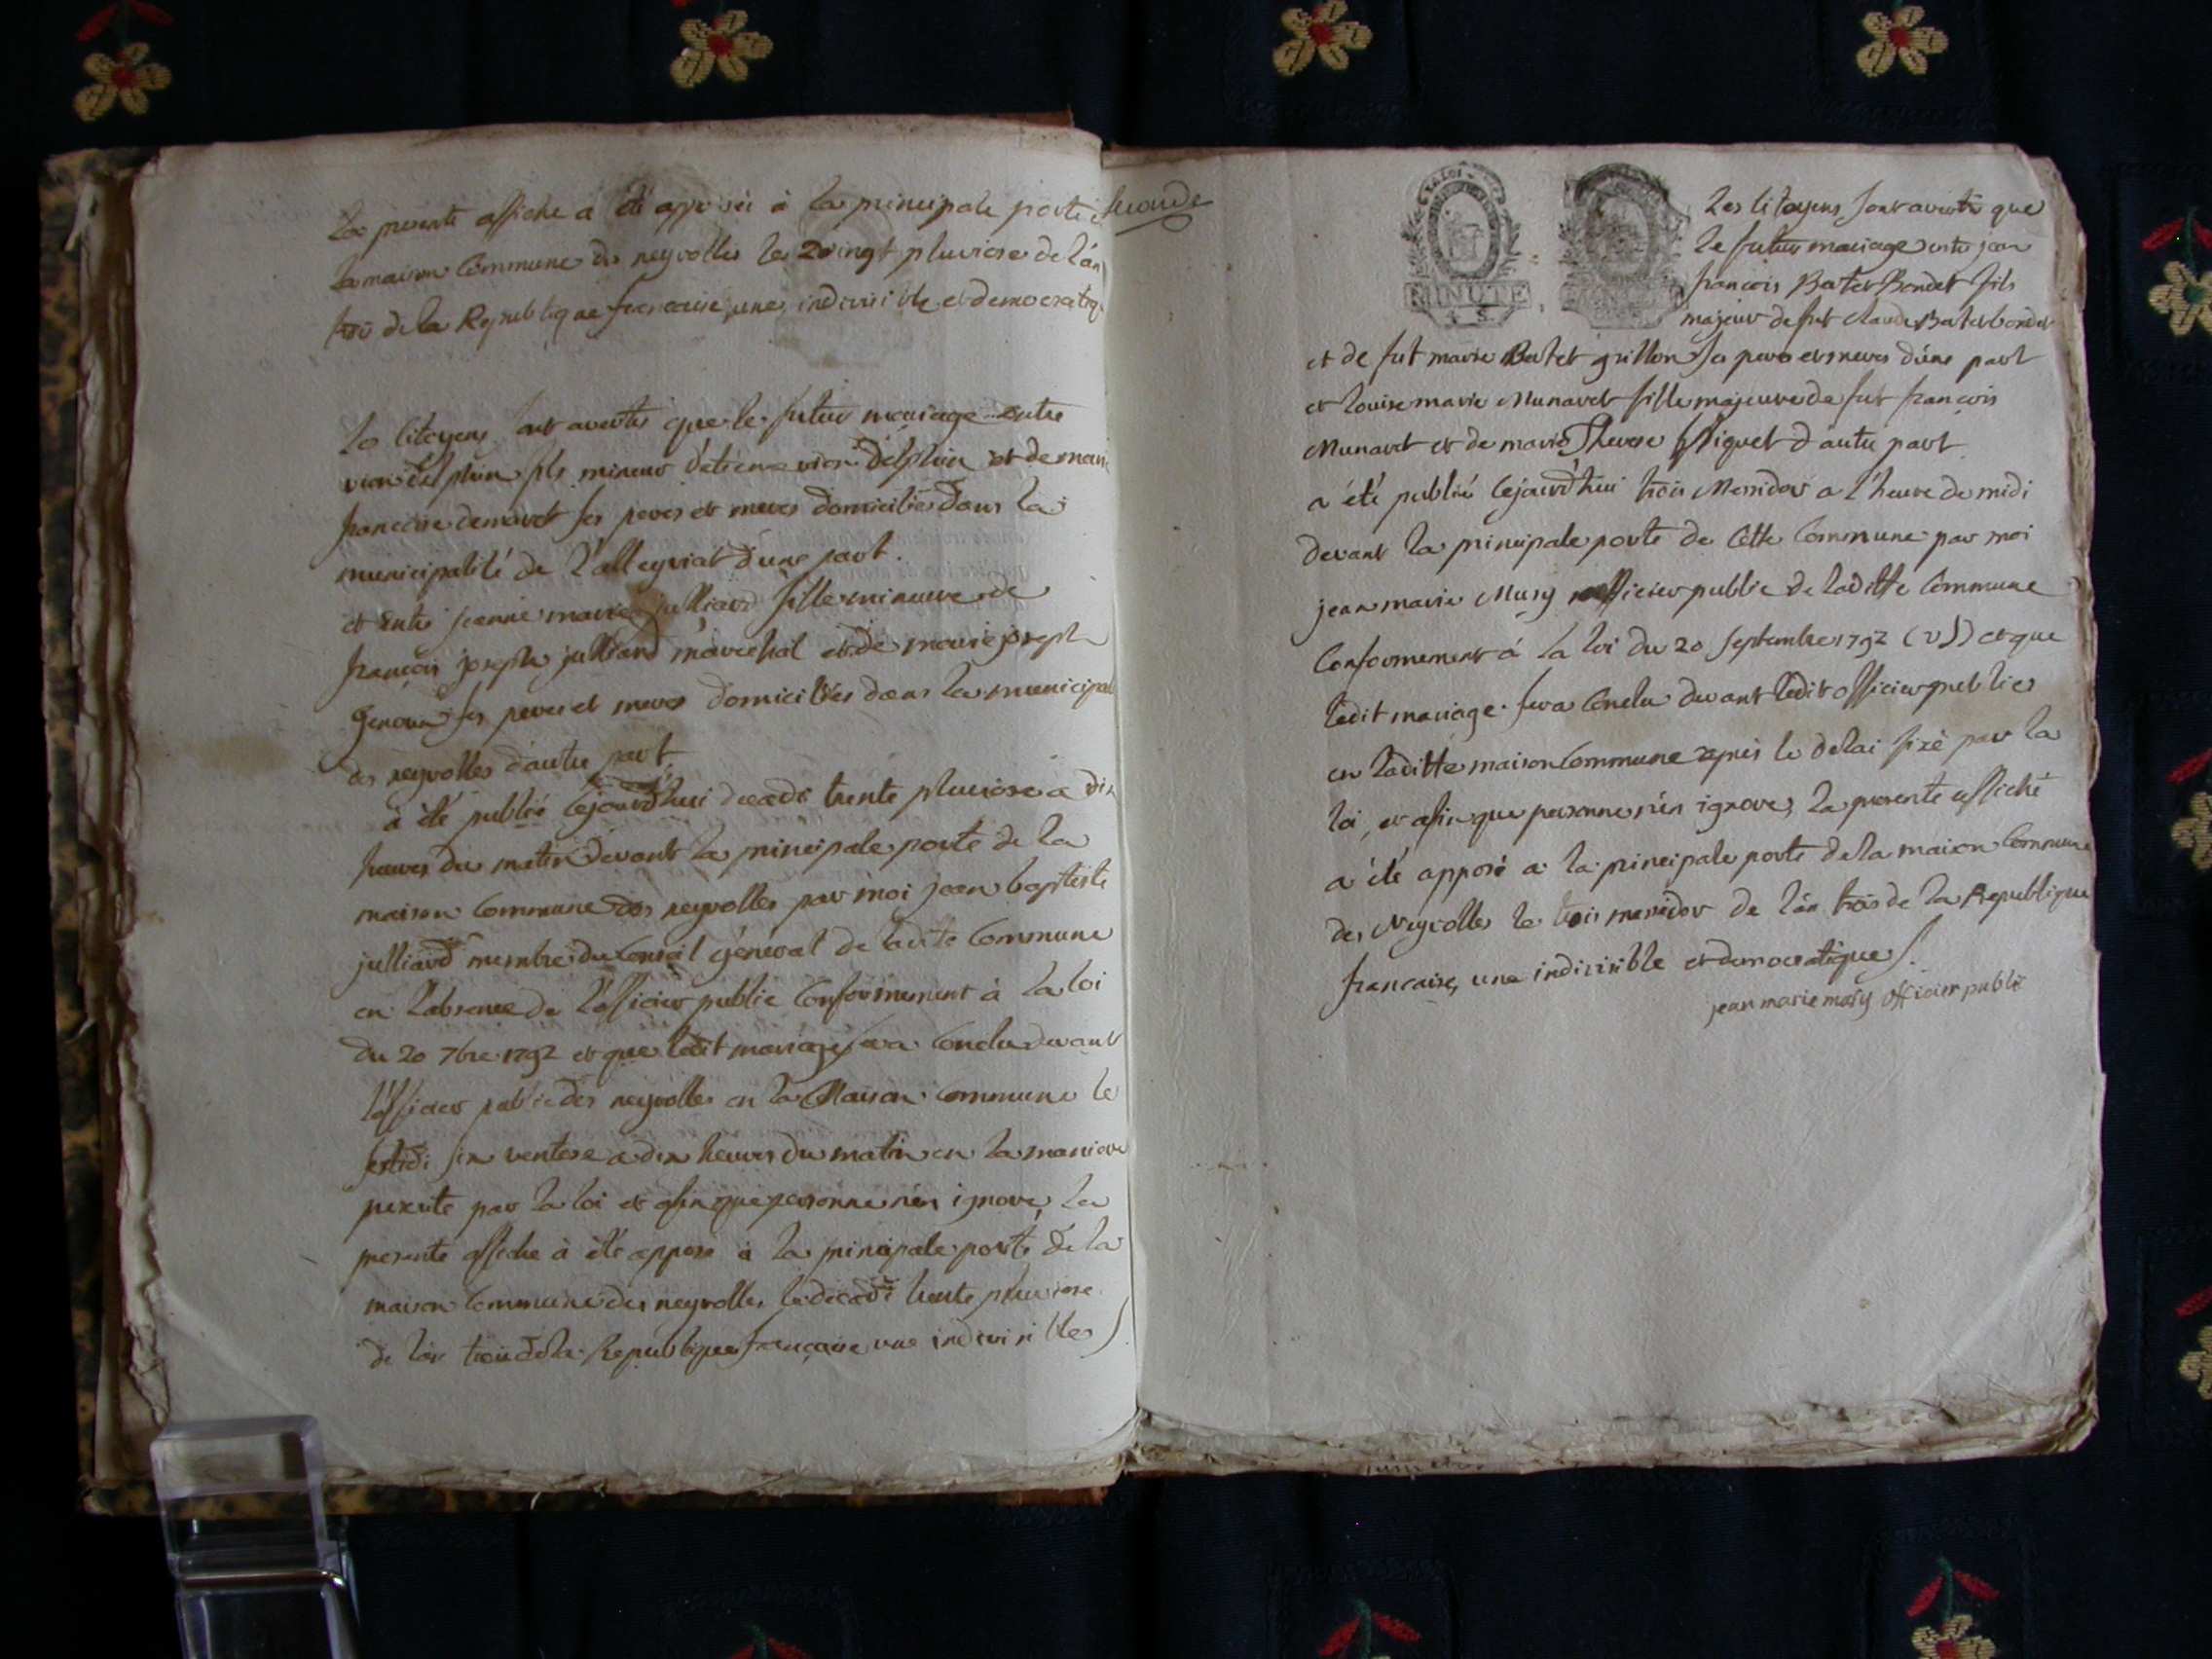 la presente affiche a été apposée à la principale porte de
la maison Commune des neyrolles le 20 vingt pluviose de l'an
trois de la Republique francaise, une, indivisible et democratiq.
Les Citoyens sont avertis que le futur mariage entre
vion delphin fils mineur d'étiene vion delphin et de marie
francoise demoret ses peres et meres domicilies dans la
municipalité de l'alleyriat d'une part.
et entre jeanne marie julliard fille mineure de
françois joseph julliard maréchal et de marie joseph
Genoux ses peres et meres domiciliés dans la municipal
des neyrolles d'autre part
à été publié cejourd'hui decadi trente pluviose a dix
heures du matin devant la principale porte de la
maison Commune des neyrolles par moi jean baptiste
julliard membre du Conseil géneral de ladite Commune
en l'absence de l'officier public Conformement à la loi
du 20 7bre 1792 et que ledit mariage sera Conclu devant
l'officier public des neyrolles en la Maison Commune le
sextidi six ventose a dix heures du matin en la maniere
prescrite par la loi et afin que personne n'en ignore, la
presente affiche à été apposé à la principale porte de la
maison Commune des neyrolles le decadi trente pluviose
de l'an trois de la Republique française une indivisible
seconde
MINUTE
Les Citoyens sont averti que
le futur mariage entre jean
françois Batet Bondet fils
majeur de fut claude Batet bondet
et de fut marie Batet grillon ses pere et meres d'une part
et louise marie Munaret fille majeure de fut françois
Munaret et de marie Therese Miguet d'autre part
a été publié cejourd'hui trois Messidor a l'heure de midi
devant la principale porte de Cette Commune par moi
jean marie Musy officier public de laditte Commune
Conformement à la loi du 20 septembre 1792 (vs) et que
ledit mariage sera Conclu devant ledit officier public
en laditte maison Commune après le delai fixé par la
loi, et afin que personne n'en ignore, la presente affiche
a été apposé a la principale porte de la maison Commune
des Neyrolles le trois messidor de l'an trois de la Republique
francaise, une indivisible et democratique
jean marie masy officier public